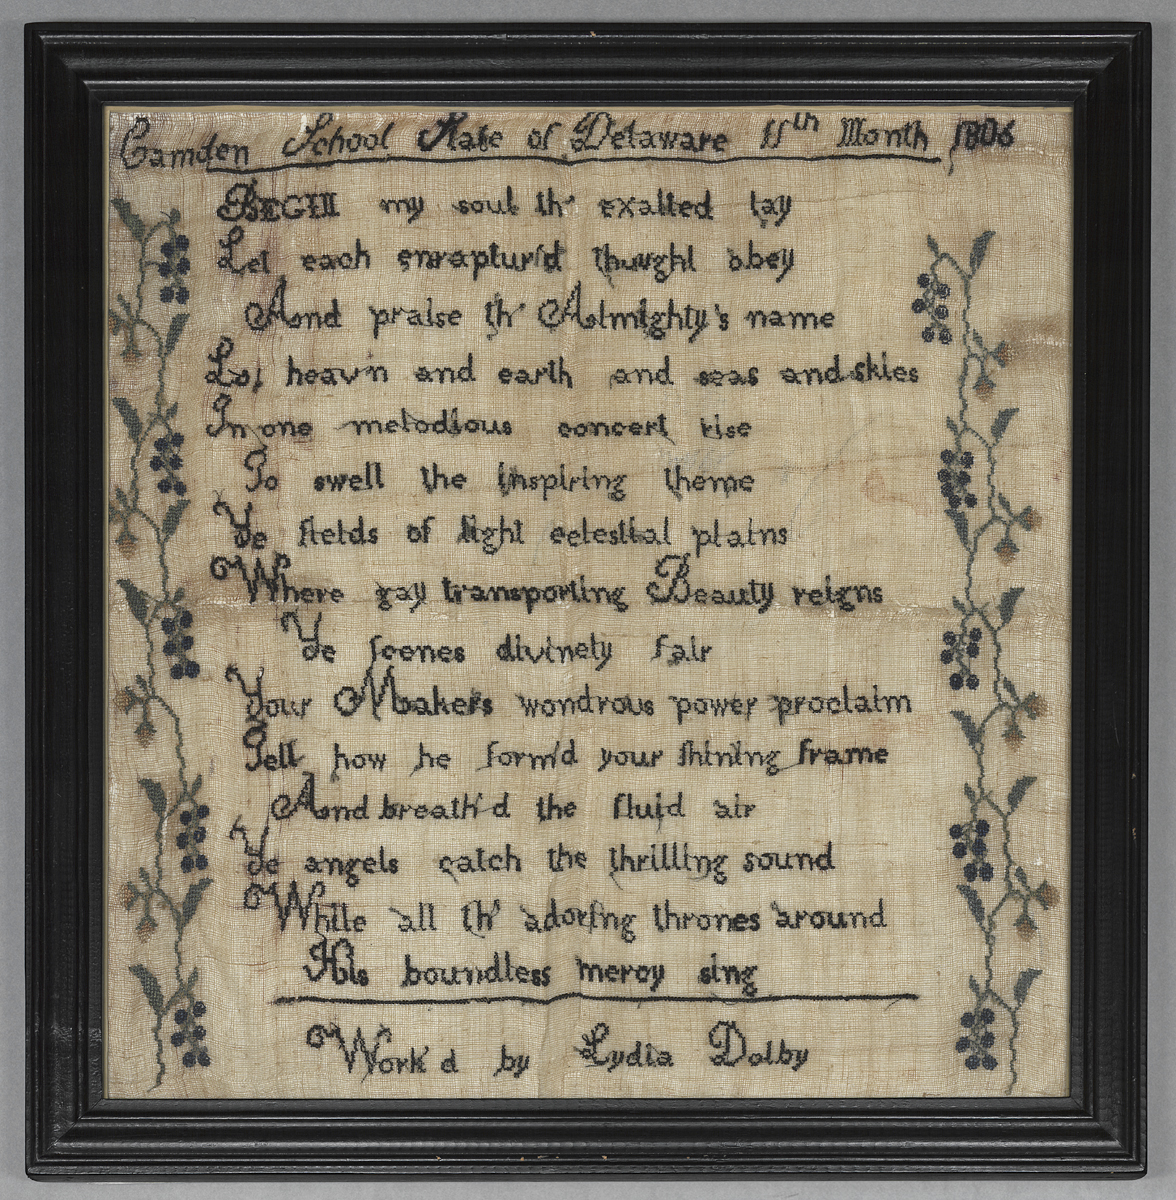 Camden School State of Delaware 11th Month 1806
BEGIN my soul th' exalted lay
Let each enraptur'd thought obey
And praise th' Almighty's name
Lo! heav'n and earth and seas and skies
In one melodious concert rise
To swell the inspiring theme
Ye fields of light celestial plains
Where gay transporting Beauty reigns
Ye scenes divinely fair
Your Makers wondrous power proclaim
Tell how he form'd your shining frame
And breath'd the fluid air
Ye angels catch the thrilling sound
While all th' adoring thrones around
His boundless mercy sing
Work'd by Lydia Dolby